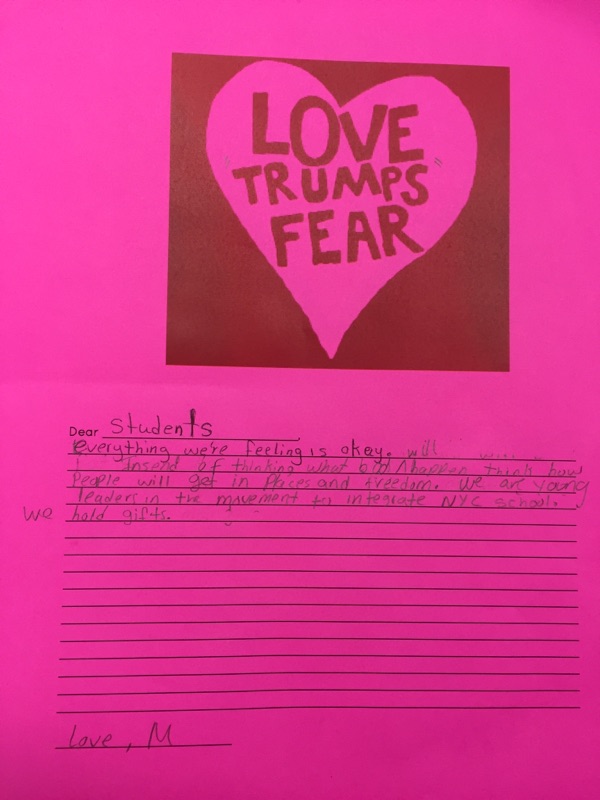 LOVE
"TRUMPS"
FEAR
Dear Students
everything we're feeling is okay. will
Insend of thinking what bad happen think how
People will get in Places and freedom. we are young
leaders in the movement to integrate NYC school.
we hold gifts.
Love, M